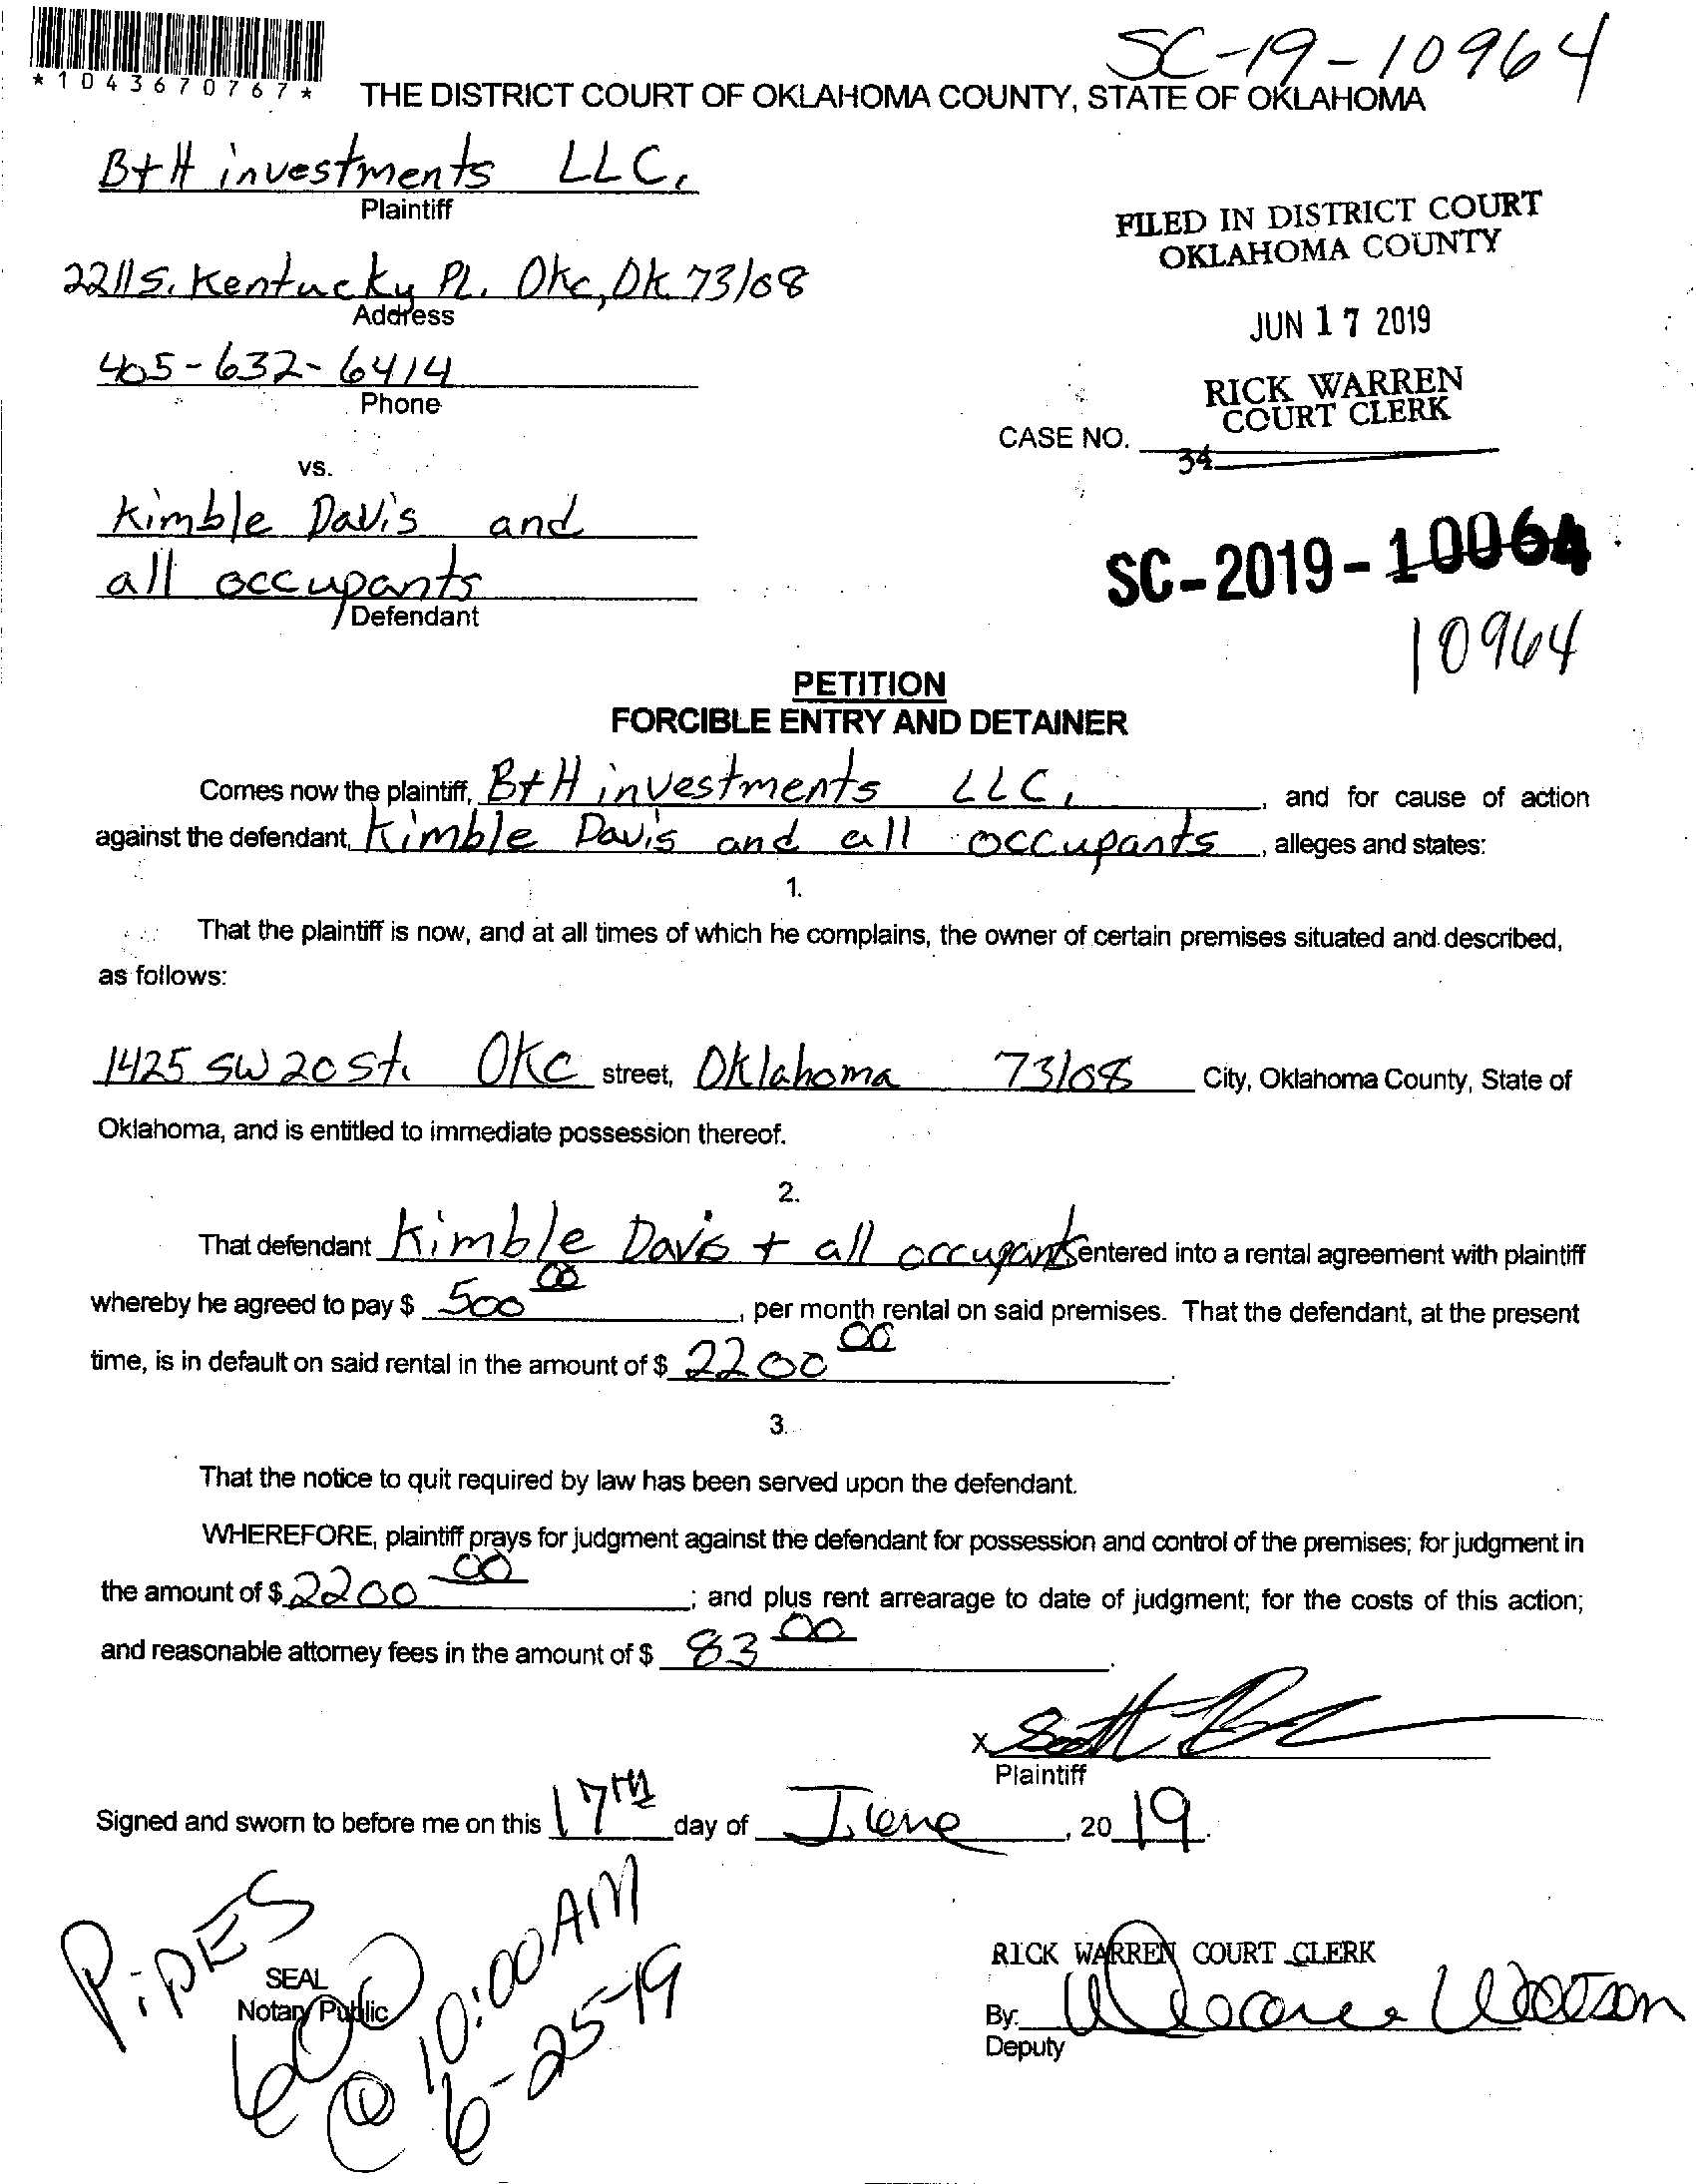 SC-19-10964
*1043670767*
THE DISTRICT COURT OF OKLAHOMA COUNTY, STATE OF OKLAHOMA
B+H investments LLC,
Plaintiff
2211 S. Kentucky Pl. Okc, OK 73108
Address
405-632-6414
Phone
FILED IN DISTRICT COURT
OKLAHOMA COUNTY
JUN 17 2019
RICK WARREN
COURT CLERK
CASE NO.
34
vs.
Kimble Davis and
all occupants
Defendant
SC-2019-10064
10964
PETITION
FORCIBLE ENTRY AND DETAINER
Comes now the plaintiff, B+H investments LLC, , and for cause of action
against the defendant, Kimble Davis and all occupants , alleges and states:
1.
That the plaintiff is now, and at all times of which he complains, the owner of certain premises situated and described,
as follows:
1425 SW 20 St. OKC street, Oklahoma 73108 City, Oklahoma County, State of
Oklahoma, and is entitled to immediate possession thereof.
2.
That defendant Kimble Davis + all occupants entered into a rental agreement with plaintiff
whereby he agreed to pay $ 500 00 , per month rental on said premises. That the defendant, at the present
time, is in default on said rental in the amount of $ 2200 00 .
3.
That the notice to quit required by law has been served upon the defendant.
WHEREFORE, plaintiff prays for judgment against the defendant for possession and control of the premises; for judgment in
the amount of $ 2200 00 ; and plus rent arrearage to date of judgment; for the costs of this action;
and reasonable attorney fees in the amount of $ 83 00 .
X Scott
Plaintiff
Signed and sworn to before me on this 17TH day of June , 20 19.
PiPES
600
@ 10:00 AM
6-25-19
SEAL
Notary Public
RICK WARREN COURT CLERK
By: Watson
Deputy